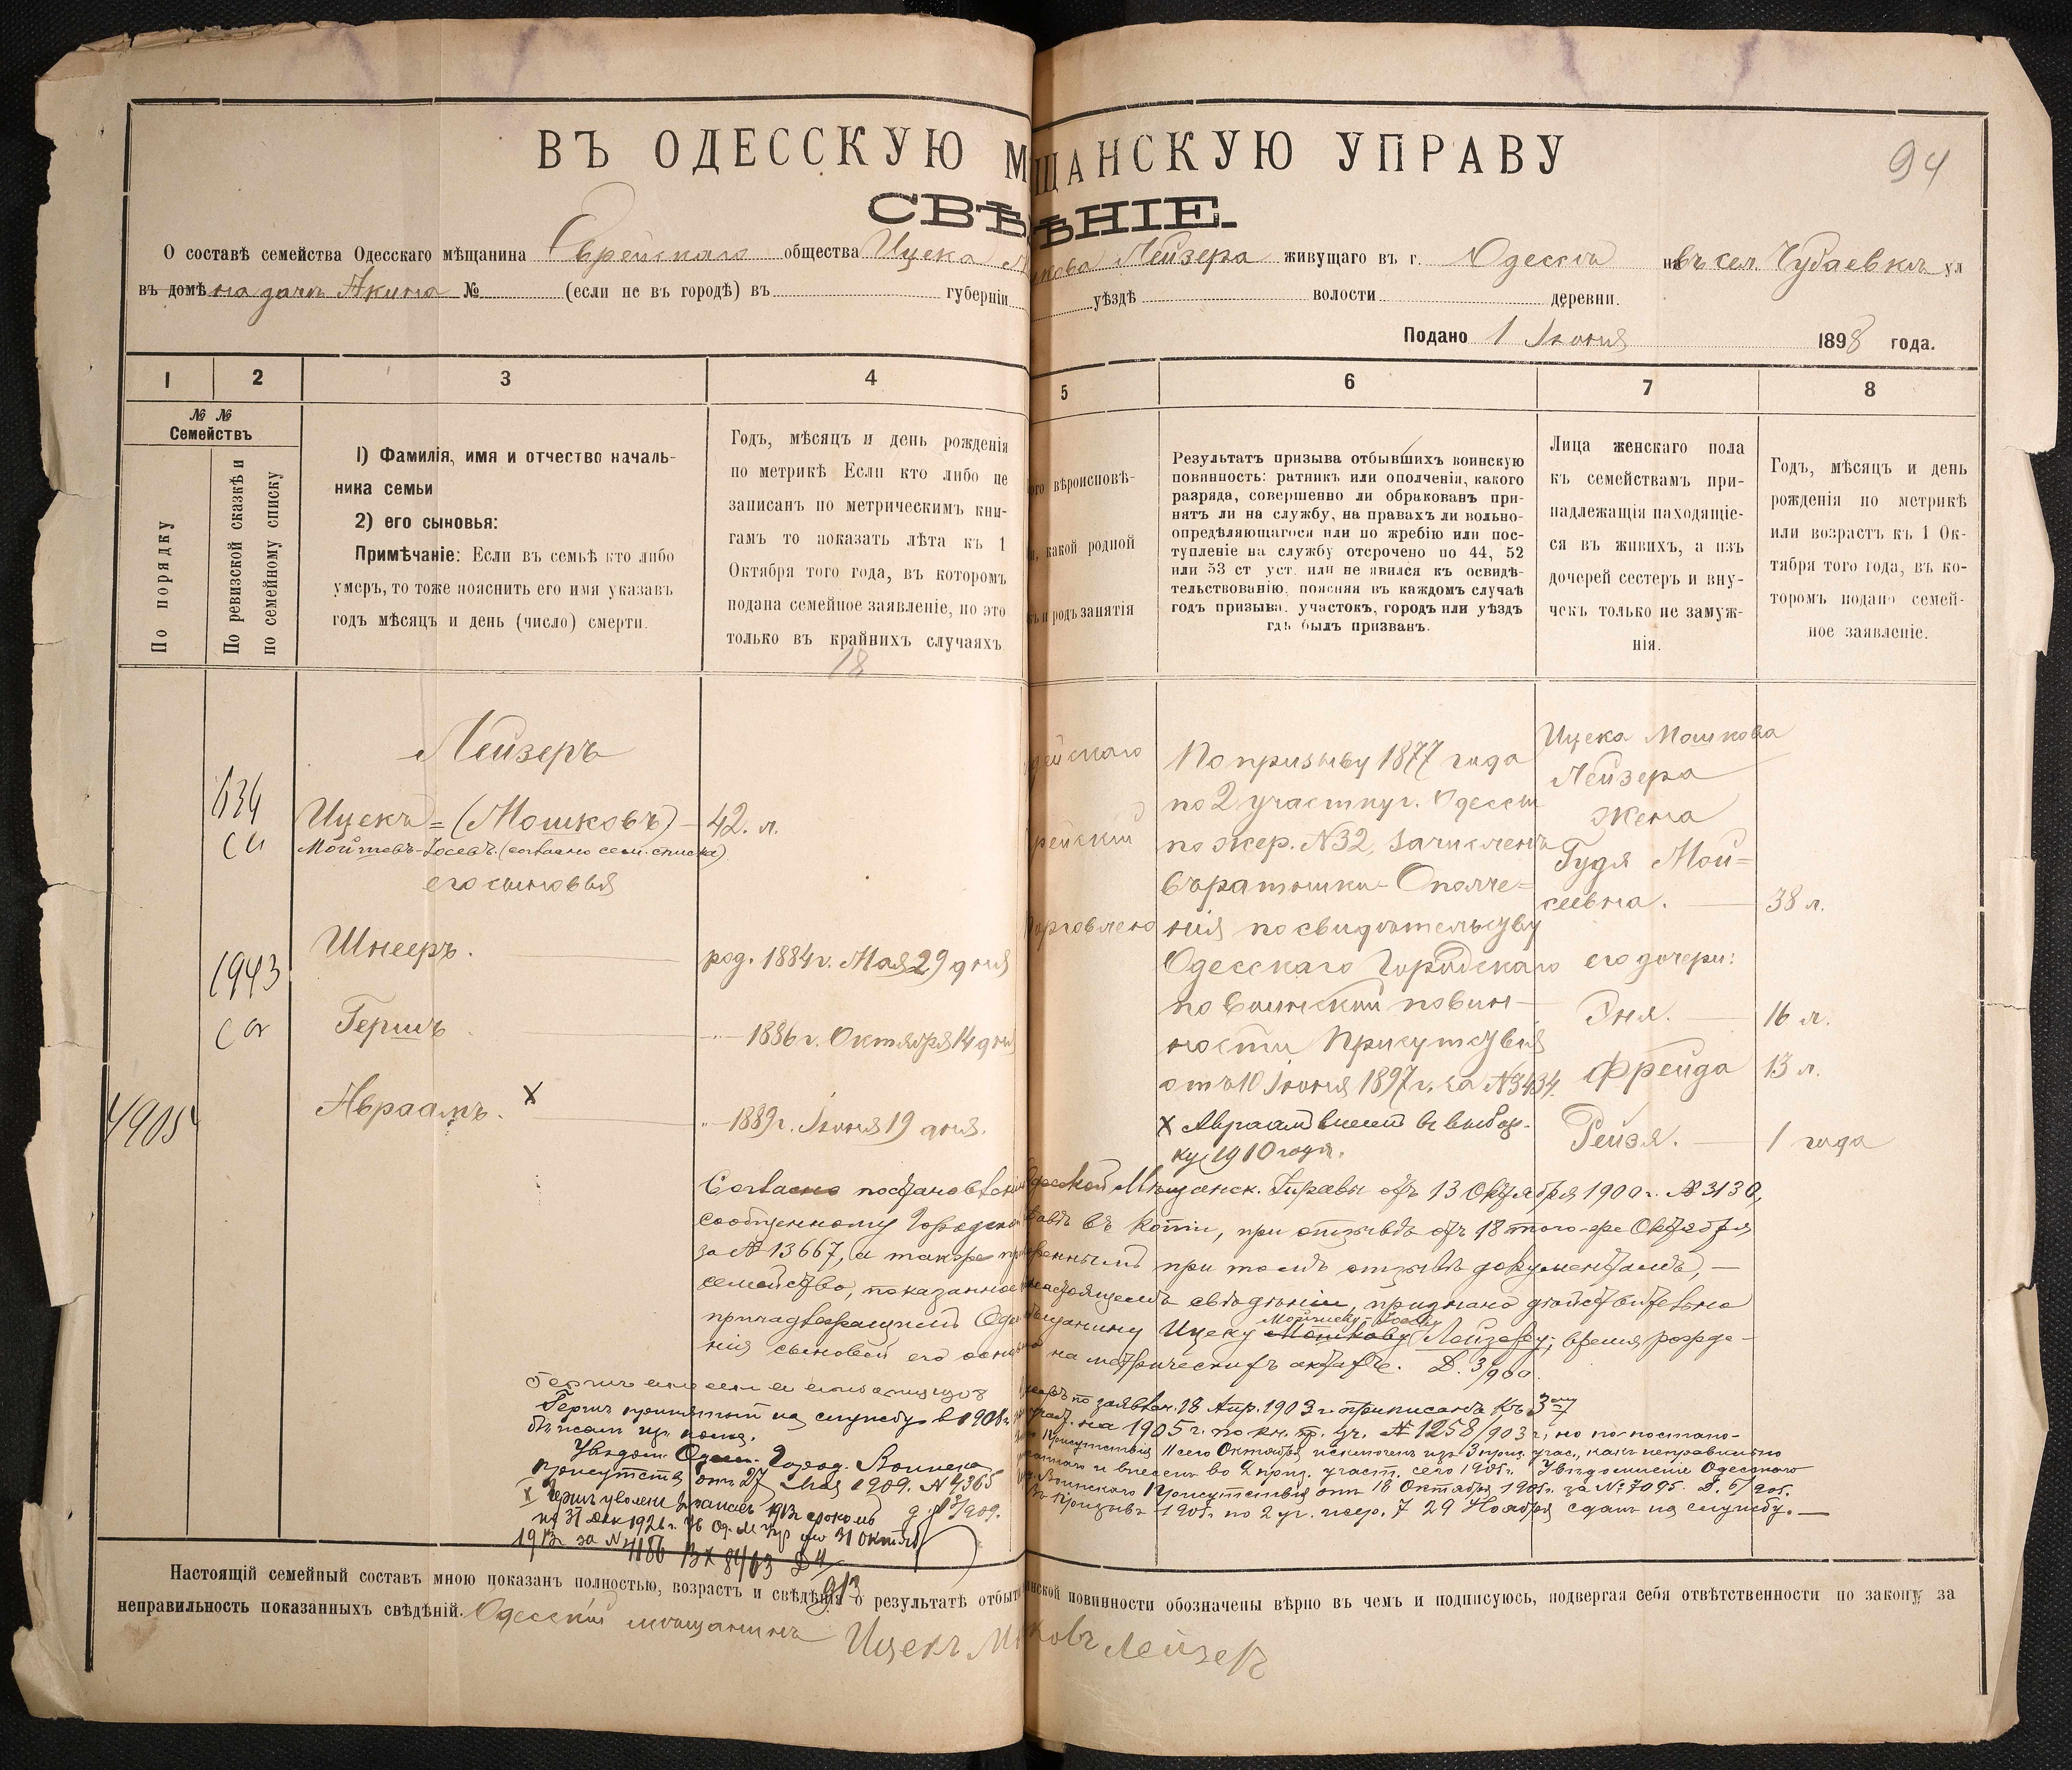 94
ВЪ ОДЕССКУЮ М ЩАНСКУЮ УПРАВУ
СВѢ ѢНІЕ.
О составѣ семейства Одесскаго мѣщанина Еврейскаго общества Ицека М шкова Лейзера живущаго въ г. Одессѣ въ сел. Чубаевкѣ ул
въ домѣ на дачѣ Акина № (если не въ городѣ) въ губерніи уѣздѣ волости деревни.
Подано 1 Іюня 1898 года.
1 2 3 4 5 6 7 8
№ №
Семействъ
По порядку
По ревизской сказкѣ и
по семейному списку
1) Фамилія, имя и отчество началь-
ника семьи
2) его сыновья:
Примѣчаніе: Если въ семьѣ кто либо
умеръ, то тоже пояснить его имя указавъ
годъ мѣсяцъ и день (число) смерти.
Годъ, мѣсяцъ и день рожденія
по метрикѣ Если кто либо не
записанъ по метрическимъ кни-
гамъ то показать лѣта къ 1
Октября того года, въ которомъ
подана семейное заявленіе, но это
только въ крайнихъ случаяхъ
18
ого вѣроисповѣ-
и, какой родной
къ и родъ занятія
Результатъ призыва отбывшихъ воинскую
повинность: ратникъ или ополченія, какого
разряда, совершенно ли обракованъ при-
нятъ ли на службу, на правахъ ли вольно-
опредѣляющагося или по жребію или пос-
тупленіе на службу отсрочено по 44, 52
или 53 ст уст. или не явился къ освидѣ-
тельствованію, поясняя въ каждомъ случаѣ
годъ призыва, участокъ, городъ или уѣздъ
гдѣ былъ призванъ.
Лица женскаго пола
къ семействамъ при-
надлежащія находящіе-
ся въ живихъ, а изъ
дочерей сестеръ и вну-
чекъ только не замуж-
нія.
Годъ, мѣсяцъ и день
рожденія по метрикѣ
или возрастъ къ 1 Ок-
тября того года, въ ко-
торомъ подано семей-
ное заявленіе.
Лейзеръ
634
Ицекъ = (Мошковъ) 42. л.
Мойшевъ-Іосевъ. (согласно сем. списка)
его сыновья
Шнееръ. род. 1884 г. Мая 29 дня
1943
Гершъ 1886 г. Октября 14 дня
Авраамъ. X 1889 г. Іюня 19 дня.
4905
ейскаго
рейскій
орговлею
По призыву 1877 года
по 2 участку г. Одессы
по жер. № 32, зачисленъ
въ ратники Ополче=
нія по свидѣтельству
Одесскаго Городскаго
по Воинской повин-
ности Присутствія
отъ 10 Іюня 1897 г. за № 3434.
X Авраам внесен въ выбор-
ку 1910 года.
Ицека Мошкова
Лейзера
жена
Гудя Мой=
сеевна. 38 л.
его дочери:
Эня. 16 л.
Фрейда 13 л.
Рейзя. 1 года
Согласно постановленію Одесской Мѣщанск. Управы отъ 13 Октября 1900 г. № 3130,
сообщенному Городской въ копіи, при отзывѣ отъ 18 того-же Октября
за № 13667, а также при женнымъ при томъ отзывѣ документамъ, —
семейство, показанное настоящемъ свѣдѣніи, признано дѣйствительно
принадлежащимъ Оде мѣщанину Ицеку Мошкову Мойшеву-Іосеву Лейзеру; время рожде-
нія сыновей его осно на метрическихъ актахъ. Д. 3/900
по заявлен. 18 Апр. 1903 г. приписанъ къ 3му
участ. на 1905 г. по кн. пр. уч. № 1258/903 г; но по постано-
Присутствія 11 сего Октября исключенъ изъ 3 приз. учас., какъ неправильно
и внесенъ во 2 приз. участ. сего 1905 г. Увѣдомленіе Одесскаго
Воинскаго Присутствія отъ 18 Октября 1905 г. за № 7095. Д. 5/905.
Въ призывъ 1905 г. по 2 уч. жер. 7 29 Ноября сданъ на службу. —
Гершъ принятый на службу въ 1905 г.
Увѣдом. Одесс. Город. Воинска
присутств. отъ 27 Мая 1909. № 4365
X Гершъ уволенъ въ запасъ 1913 срокомъ
по 31 Дек 1926 г.
1913 за № 4186 Вх 8463
913
Настоящій семейный составъ мною показанъ полностью, возрастъ и свѣдѣнія о результатѣ отбыт инской повинности обозначены вѣрно въ чемъ и подписуюсь, подвергая себя отвѣтственности по закону за
неправильность показанныхъ свѣдѣній. Одесскій мѣщанинъ Ицекъ М ковъ Лейзеръ